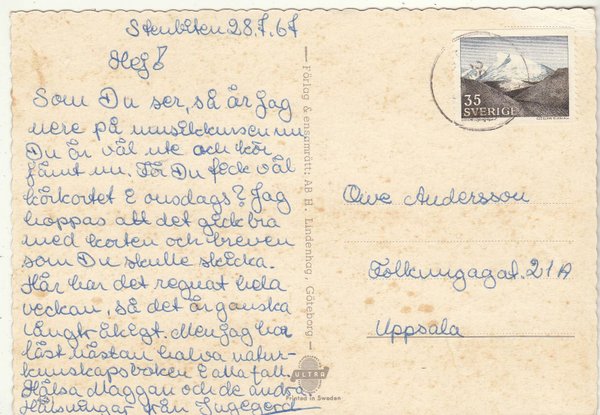 Stenbiten 28.7.67
Hej!
Som Du ser, så är jag
nere på musikkursen nu.
Du är väl ute och kör
jämt nu. För Du fick väl
körkortet i onsdags? Jag
hoppas att det gick bra
med korten och breven
som Du skulle skicka.
Här har det regnat hela
veckan, så det är ganska
långtråkigt. Men jag har
läst nästan halva natur-
kunskapsboken i alla fall.
Hälsa Maggan och de andra
Hälsningar från Ingegerd
Förlag & ensamrätt: AB H. Lindenhag, Göteborg
ULTRA
Printed in Sweden
35
SVERIGE
Owe Andersson
Folkungagat. 21A
Uppsala